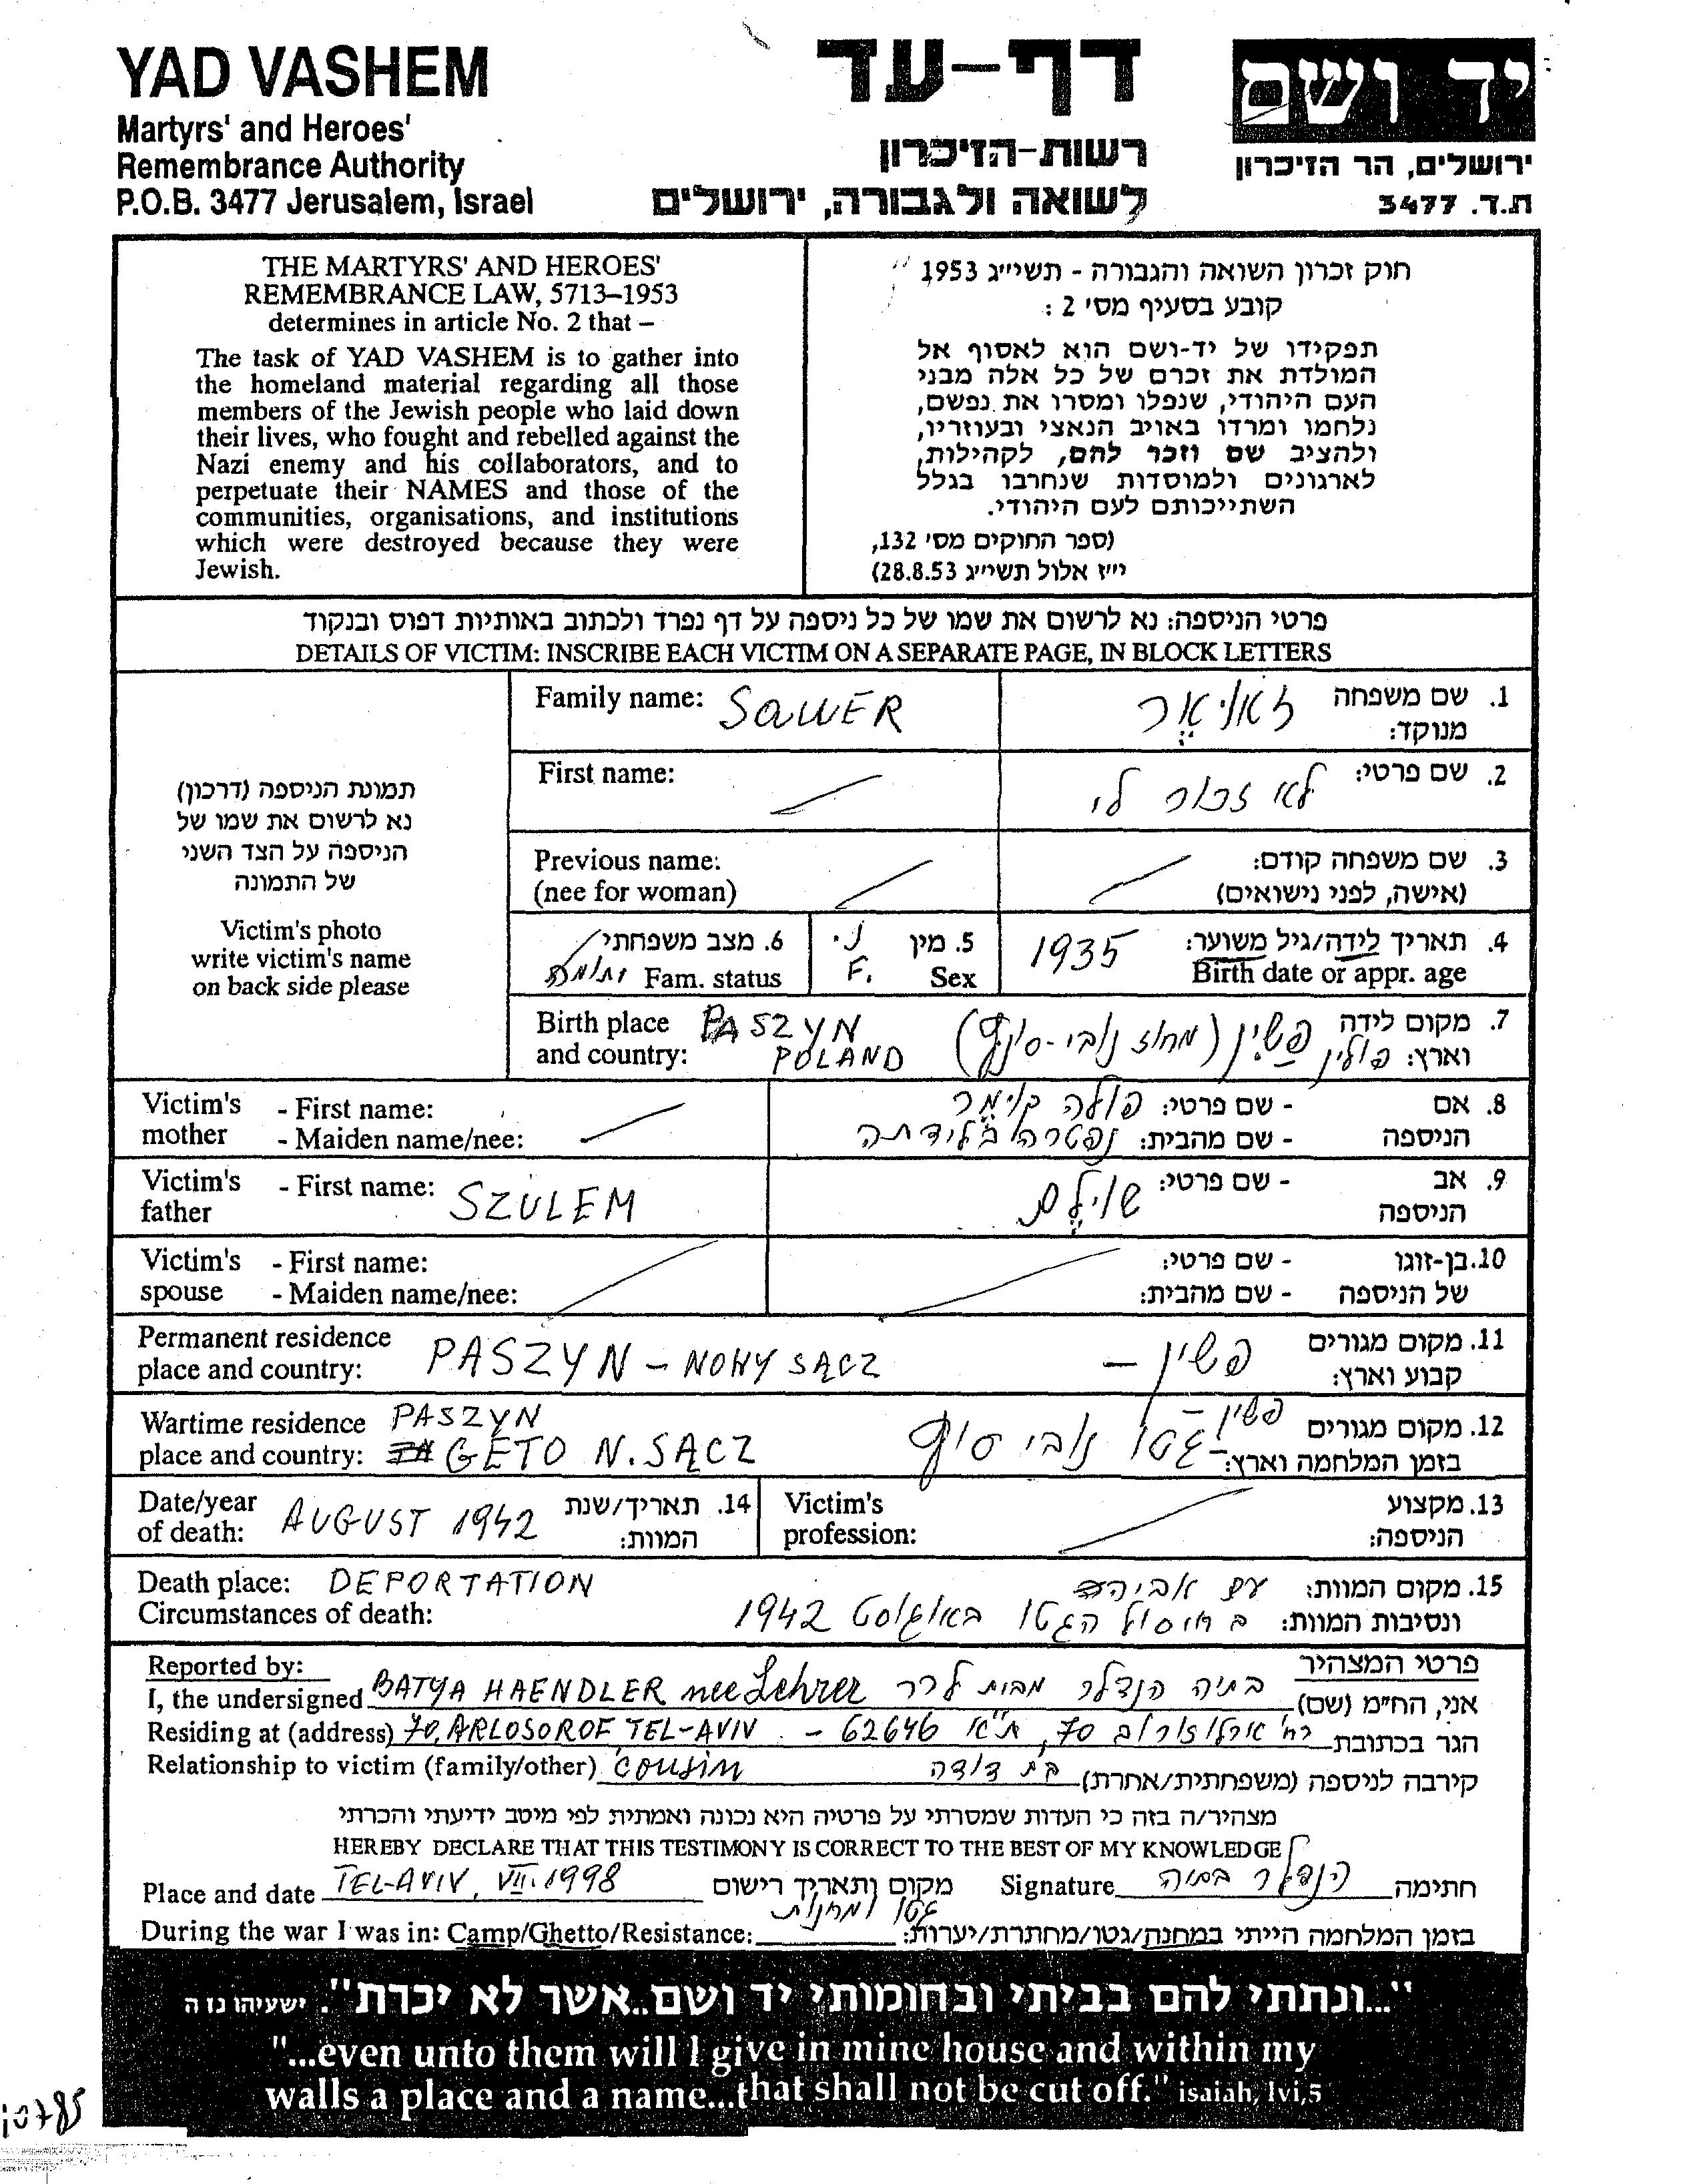 YAD VASHEM
Martyrs' and Heroes'
Remembrance Authority
P.O.B. 3477 Jerusalem, Israel
דף-עד
רשות-הזיכרון
לשואה ולגבורה, ירושלים
יד ושם
ירושלים, הר הזיכרון
ת.ד. 3477
THE MARTYRS' AND HEROES'
REMEMBRANCE LAW, 5713–1953
determines in article No. 2 that –
The task of YAD VASHEM is to gather into
the homeland material regarding all those
members of the Jewish people who laid down
their lives, who fought and rebelled against the
Nazi enemy and his collaborators, and to
perpetuate their NAMES and those of the
communities, organisations, and institutions
which were destroyed because they were
Jewish.
חוק זכרון השואה והגבורה - תשי״ג 1953
קובע בסעיף מס' 2 :
תפקידו של יד-ושם הוא לאסוף אל
המולדת את זכרם של כל אלה מבני
העם היהודי, שנפלו ומסרו את נפשם,
נלחמו ומרדו באויב הנאצי ובעוזריו,
ולהציב שם וזכר להם, לקהילות,
לארגונים ולמוסדות שנחרבו בגלל
השתייכותם לעם היהודי.
(ספר החוקים מס' 132,
י״ז אלול תשי״ג 28.8.53)
פרטי הניספה: נא לרשום את שמו של כל ניספה על דף נפרד ולכתוב באותיות דפוס ובנקוד
DETAILS OF VICTIM: INSCRIBE EACH VICTIM ON A SEPARATE PAGE, IN BLOCK LETTERS
תמונת הניספה (דרכון)
נא לרשום את שמו של
הניספה על הצד השני
של התמונה
Victim's photo
write victim's name
on back side please
Family name: SAWER
1. שם משפחה
מנוקד:
First name:
2. שם פרטי: לא זכור לי
Previous name:
(nee for woman)
3. שם משפחה קודם:
(אישה, לפני נישואים)
4. תאריך לידה/גיל משוער: 1935
Birth date or appr. age
5. מין נ.
Sex F.
6. מצב משפחתי
Fam. status
Birth place PASZYN
and country: POLAND
7. מקום לידה פשין (מחוז נובי-סונץ)
וארץ: פולין
Victim's - First name:
mother - Maiden name/nee:
8. אם - שם פרטי: פולה
הניספה - שם מהבית: נפטרה בלידתה
Victim's - First name: SZULEM
father
9. אב - שם פרטי: שוילם
הניספה
Victim's - First name:
spouse - Maiden name/nee:
10. בן-זוגו - שם פרטי:
של הניספה - שם מהבית:
Permanent residence
place and country: PASZYN – NOWY SĄCZ
11. מקום מגורים פשין –
קבוע וארץ:
Wartime residence PASZYN
place and country: GETO N. SĄCZ
12. מקום מגורים פשין –
בזמן המלחמה וארץ: גטו נובי סונץ
Date/year
of death: AUGUST 1942
14. תאריך/שנת
המוות:
Victim's
profession:
13. מקצוע
הניספה:
Death place: DEPORTATION
Circumstances of death:
15. מקום המוות: עם אביה
ונסיבות המוות: בחיסול הגטו באוגוסט 1942
Reported by:
פרטי המצהיר
I, the undersigned BATYA HAENDLER nee Lehrer
אני, הח״מ (שם) בתיה הנדלר מבית לרר
Residing at (address) 70, ARLOSOROF TEL-AVIV – 62646
הגר בכתובת רח' ארלוזורוב 70, ת״א
Relationship to victim (family/other) cousin
קירבה לניספה (משפחתית/אחרת) בת דודה
מצהיר/ה בזה כי העדות שמסרתי על פרטיה היא נכונה ואמתית לפי מיטב ידיעתי והכרתי
HEREBY DECLARE THAT THIS TESTIMONY IS CORRECT TO THE BEST OF MY KNOWLEDGE
Place and date TEL-AVIV, VII.1998 מקום ותאריך רישום
Signature הנדלר בתיה חתימה
גטו ומחנות
During the war I was in: Camp/Ghetto/Resistance:
בזמן המלחמה הייתי במחנה/גטו/מחתרת/יערות:
"...ונתתי להם בביתי ובחומותי יד ושם..אשר לא יכרת". ישעיהו נו ה
"...even unto them will I give in mine house and within my
walls a place and a name...that shall not be cut off." isaiah, lvi,5